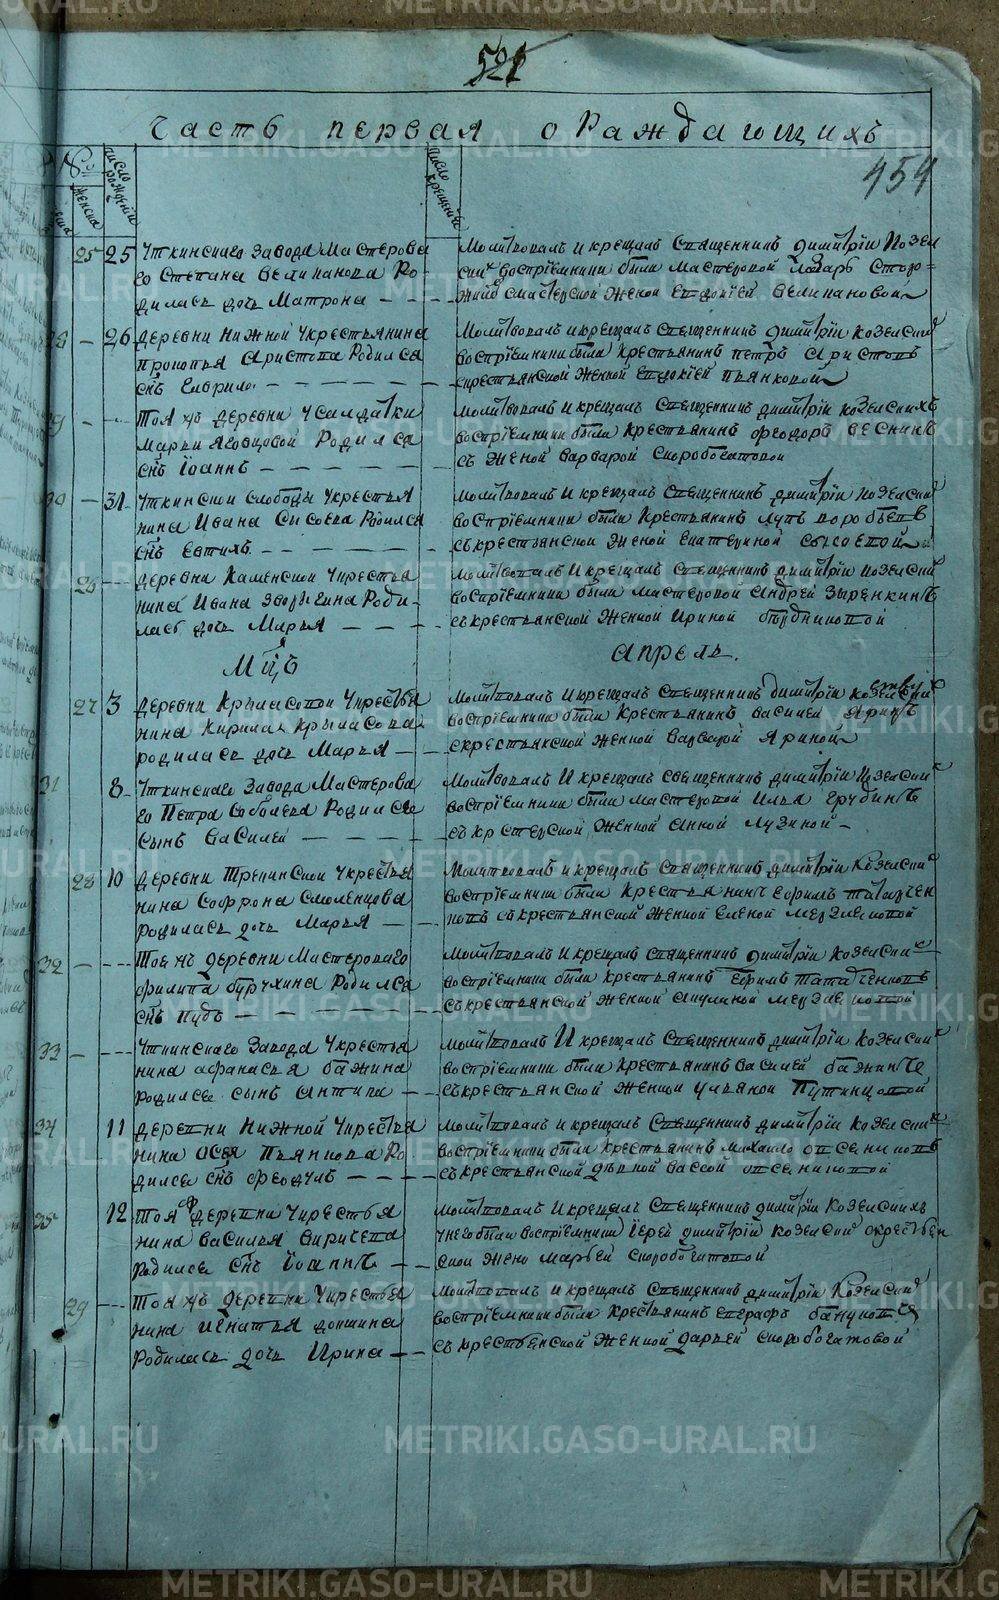 521
Часть первая о Раждающихъ
454
число рождения
женска
число крещения
25 25 Уткинскаго Завода Мастерова
го Степана Великанова Ро-
дилась дочь Матрона
Молитвовалъ и крещалъ Священникъ Димитрїи Козел
воспрїемники были мастеровой Лазарь Сторо=
жевъ смастерской женой Евдокїей Великановой
28 26 деревни Нижной Укрестьянина
Прокопья Аристова Родился
снъ Гаврило
Молитвовалъ и крещалъ Священникъ Димитрїи Козелски
воспрїемники были крестьянинъ петръ Аристовъ
скрестьянской женной Евдокїей Пьянковой
29 Тоя жъ деревни Усалдатки
Марьи Яговцовой Родился
снъ Їоаннъ
Молитвовалъ и крещалъ Священникъ Димитрїи Козелскихъ
воспрїемники были крестьянинъ феодоръ Веснинъ
съ женой варварой скоробогатовой
30 31 Уткинскои слободы Укрестья
нина Ивана Сысоева Родился
снъ
Молитвовалъ и крещалъ Священникъ Димитрїи Козелски
воспрїемники были крестьянинъ лупъ воробьевъ
съкрестьянской женой екатериной сысоевой
26 деревни Каменской Укрестья
нина Ивана Зворыгина Роди-
лась дочь Марья
Молитвовалъ и крещалъ Священникъ Димитрїи Козелски
воспрїемники были мастеровой Андрей Зыренкинъ
съкрестьянской женной Ириной бѣудниковой
Мцъ Апрель.
27 3 деревни Крыласовой Укрестья
нина Кирила Крыласова
родилась дочь Марья
Молитвовалъ и крещалъ Священникъ Димитрїи Козелскїй
воспрїемники были крестьянинъ василей Яринъ
скрестьянской женной варварой Яриной
31 8 Уткинскаго Завода Мастерова
го Петра Соболева Родился
сынъ василей
Молитвовалъ и крещалъ священникъ Димитрїи Козелски
воспрїемники были мастеровой Илья грубинъ
женной Анной Лузиной
28 10 деревни Трекинской Укрестья
нина Софрона Смоленцова
родилась дочь Марья
Молитвовалъ и крещалъ Священникъ Димитрїи Козелски
воспрїемники были крестьянинъ Ефримъ татарчен
ковъ съкрестьянской женной еленой
32 Тоя жъ деревни Мастероваго
филипа бурухина Родился
снъ Пудъ
Молитвовалъ и крещалъ священникъ Димитрїи Козелски
воспрїемники были крестьянинъ Ефримъ Татарченковъ
съкрестьянской женной акулиной
33 Уткинскаго Завода Укрестья
нина афанасья бажина
родился сынъ антипа
Молитвовалъ И крещалъ Священникъ Димитрїи Козелски
воспрїемники были крестьянинъ василей бажинъ
съкрестьянской женной ульяной Путинцовой
34 11 деревни Нижной Укрестья
нина Осея Пьянкова Ро
дился снъ феодулъ
Молитвовалъ и крещалъ Священникъ Димитрїи Козелски
воспрїемники были крестьянинъ михаило овсениковъ
съкрестьянской дѣвкой вассой овсениковой
35 12 Тоя жъ деревни Укрестья
нина василья киричева
родился снъ Їоаннъ
Молитвовалъ и крещалъ Священникъ Димитрїи Козелскихъ
унего были воспрїемники Їерей димитрїй козелски скрестьян
ской жено Марьей скоробогатовой
29 Тоя жъ деревни Укрестья
нина игнатья
родилась дочь Ирина
Молитвовалъ и крещалъ Священникъ Димитрїи Козелски
воспрїемники были крестьянинъ Еграфъ бануковъ
съ крестьянской женной дарьей скоробогатовой
METRIKI.GASO-URAL.RU